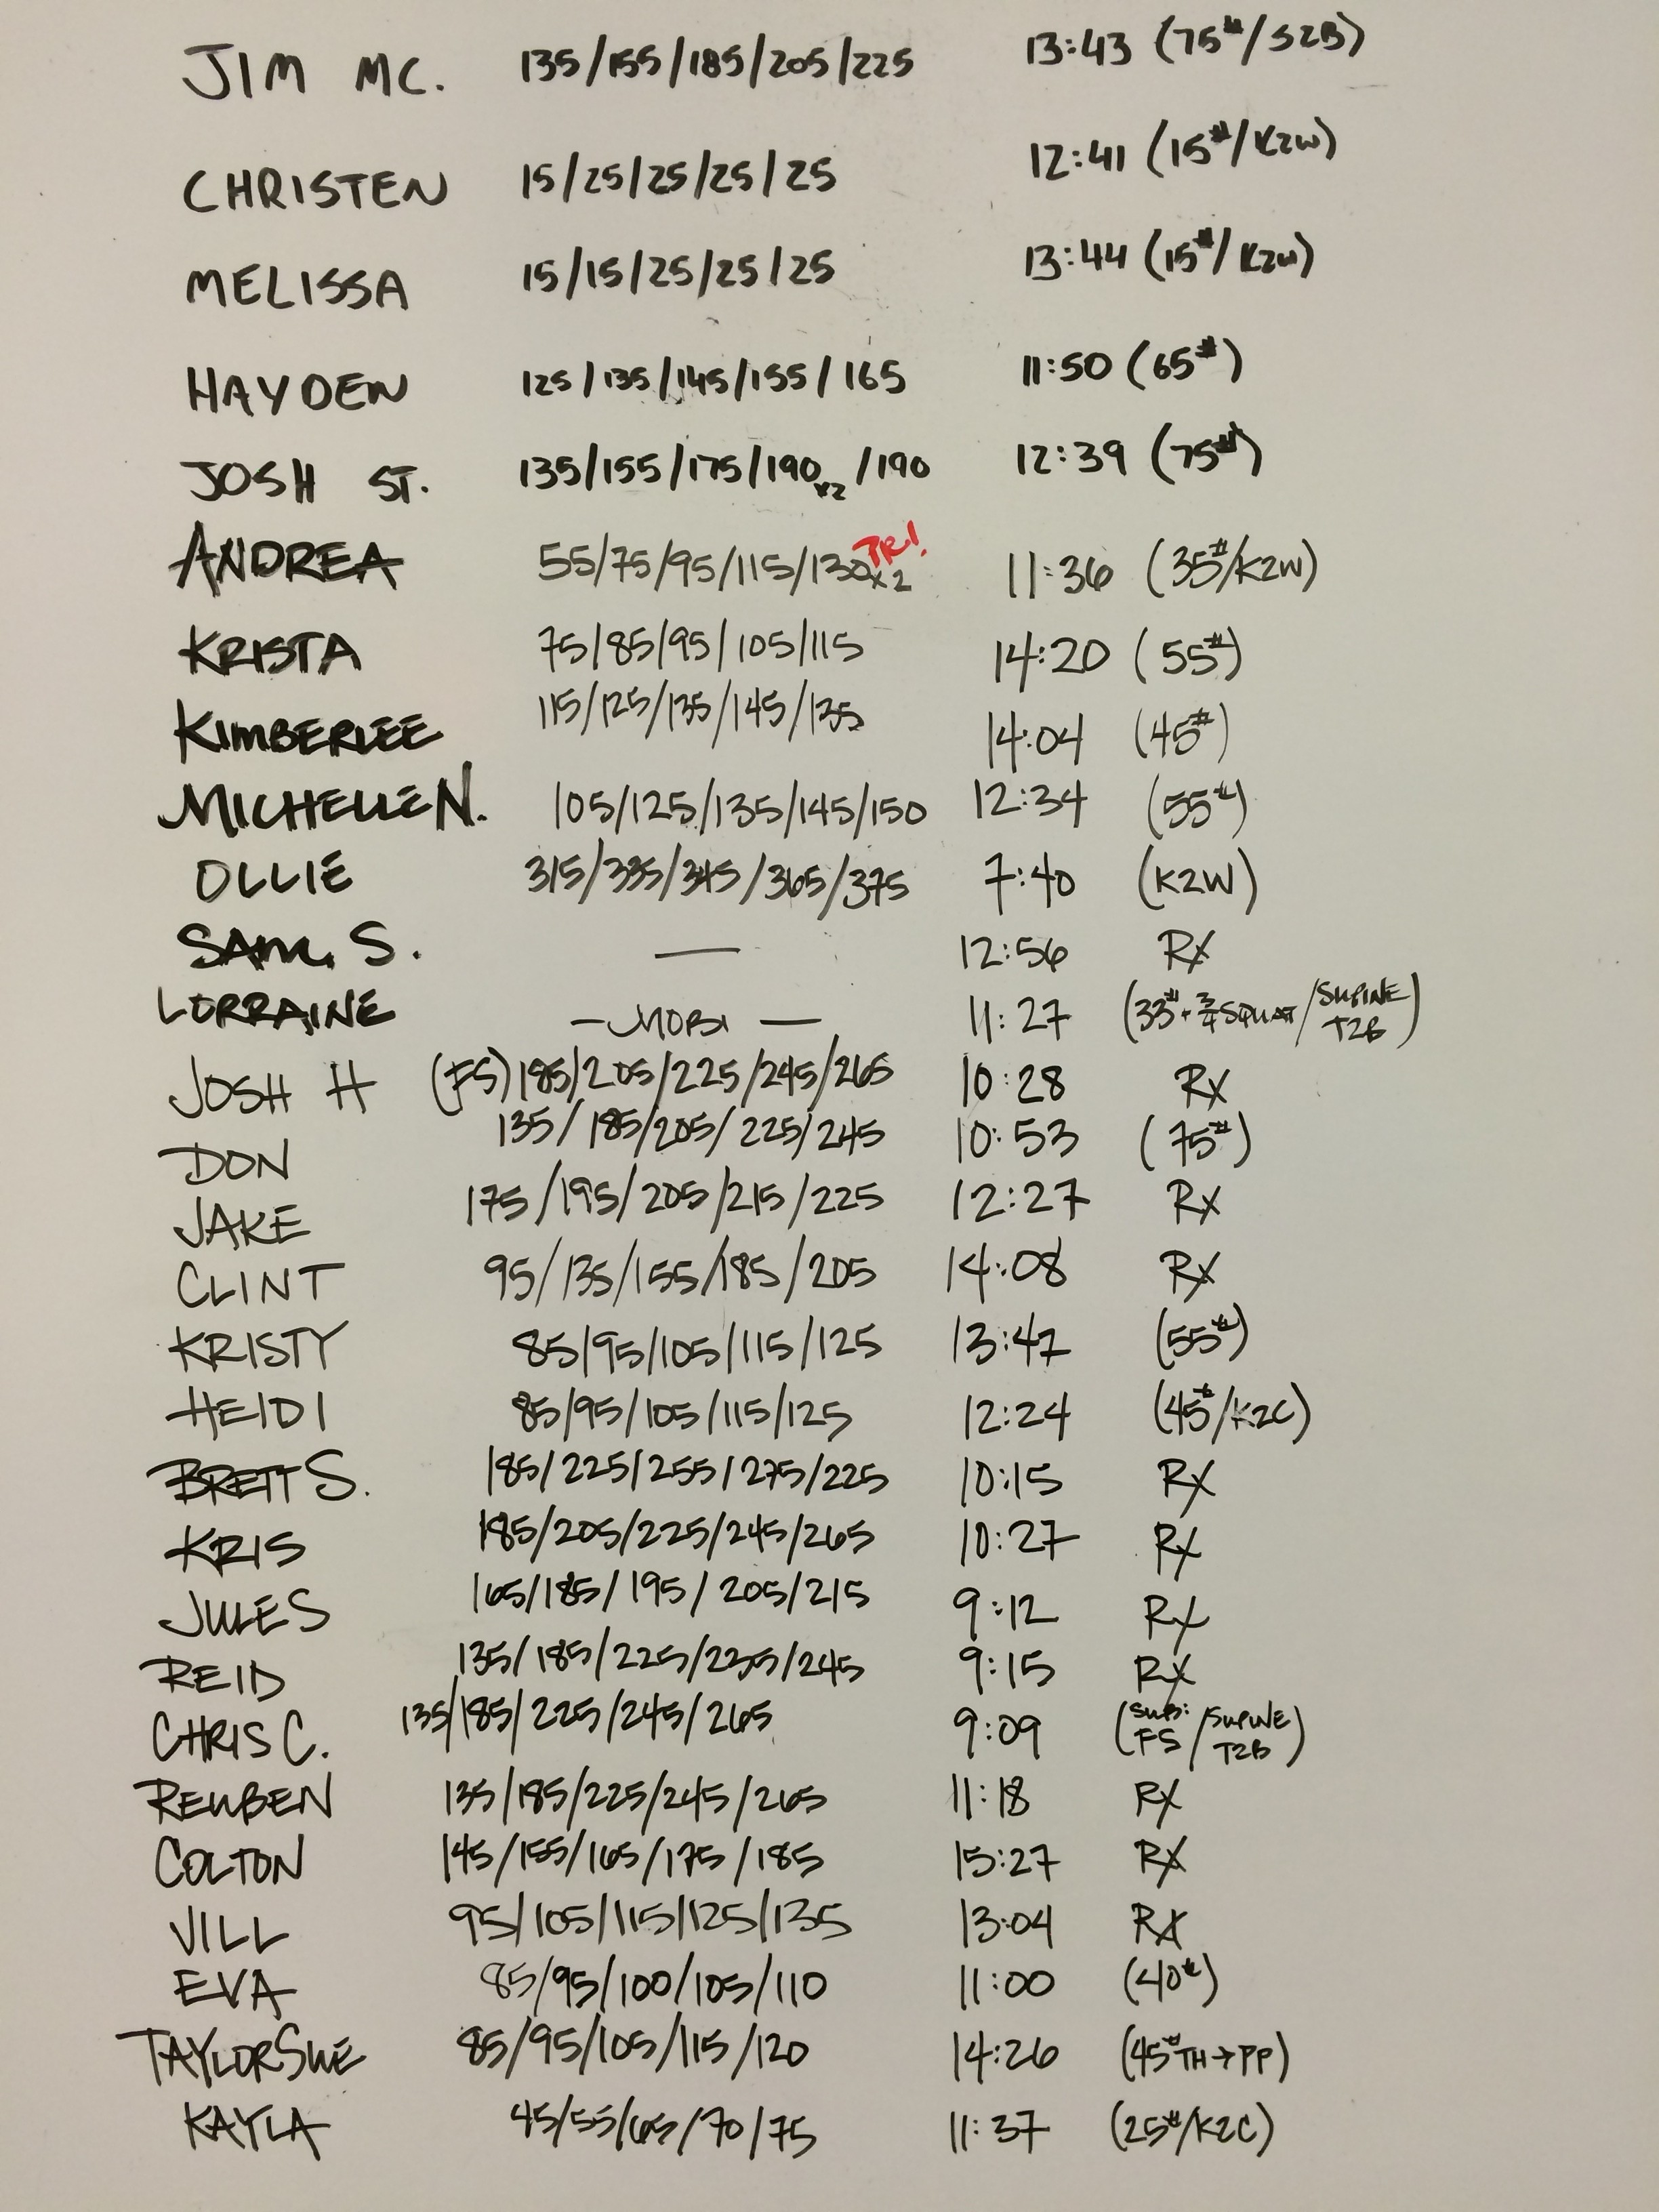 JIM MC. 135/155/185/205/225 13:43 (75#/S2B)
CHRISTEN 15/25/25/25/25 12:41 (15#/K2W)
MELISSA 15/15/25/25/25 13:44 (15#/K2W)
HAYDEN 125/135/145/155/165 11:50 (65#)
JOSH ST. 135/155/175/190x2/190 12:39 (75#)
ANDREA 55/75/95/115/130x2 PR! 11:36 (35#/K2W)
KRISTA 75/85/95/105/115 14:20 (55#)
KIMBERLEE 115/125/135/145/135 14:04 (45#)
MICHELLE N. 105/125/135/145/150 12:34 (55#)
OLLIE 315/335/345/365/375 7:40 (K2W)
SAM S. — 12:56 RX
LORRAINE — MOBI — 11:27 (33# + 3/4 SQUAT/SUPINE T2B)
JOSH H (FS) 185/205/225/245/265 10:28 RX
DON 135/185/205/225/245 10:53 (75#)
JAKE 175/195/205/215/225 12:27 RX
CLINT 95/135/155/185/205 14:08 RX
KRISTY 85/95/105/115/125 13:47 (55#)
HEIDI 85/95/105/115/125 12:24 (45#/K2C)
BRETT S. 185/225/255/275/225 10:15 RX
KRIS 185/205/225/245/265 10:27 RX
JULES 165/185/195/205/215 9:12 RX
REID 135/185/225/235/245 9:15 RX
CHRIS C. 135/185/225/245/265 9:09 (SUB: FS/SUPINE T2B)
REUBEN 135/185/225/245/265 11:18 RX
COLTON 145/155/165/175/185 15:27 RX
JILL 95/105/115/125/135 13:04 RX
EVA 85/95/100/105/110 11:00 (40#)
TAYLOR SWE 85/95/105/115/120 14:26 (45# TH→PP)
KAYLA 45/55/65/70/75 11:37 (25#/K2C)